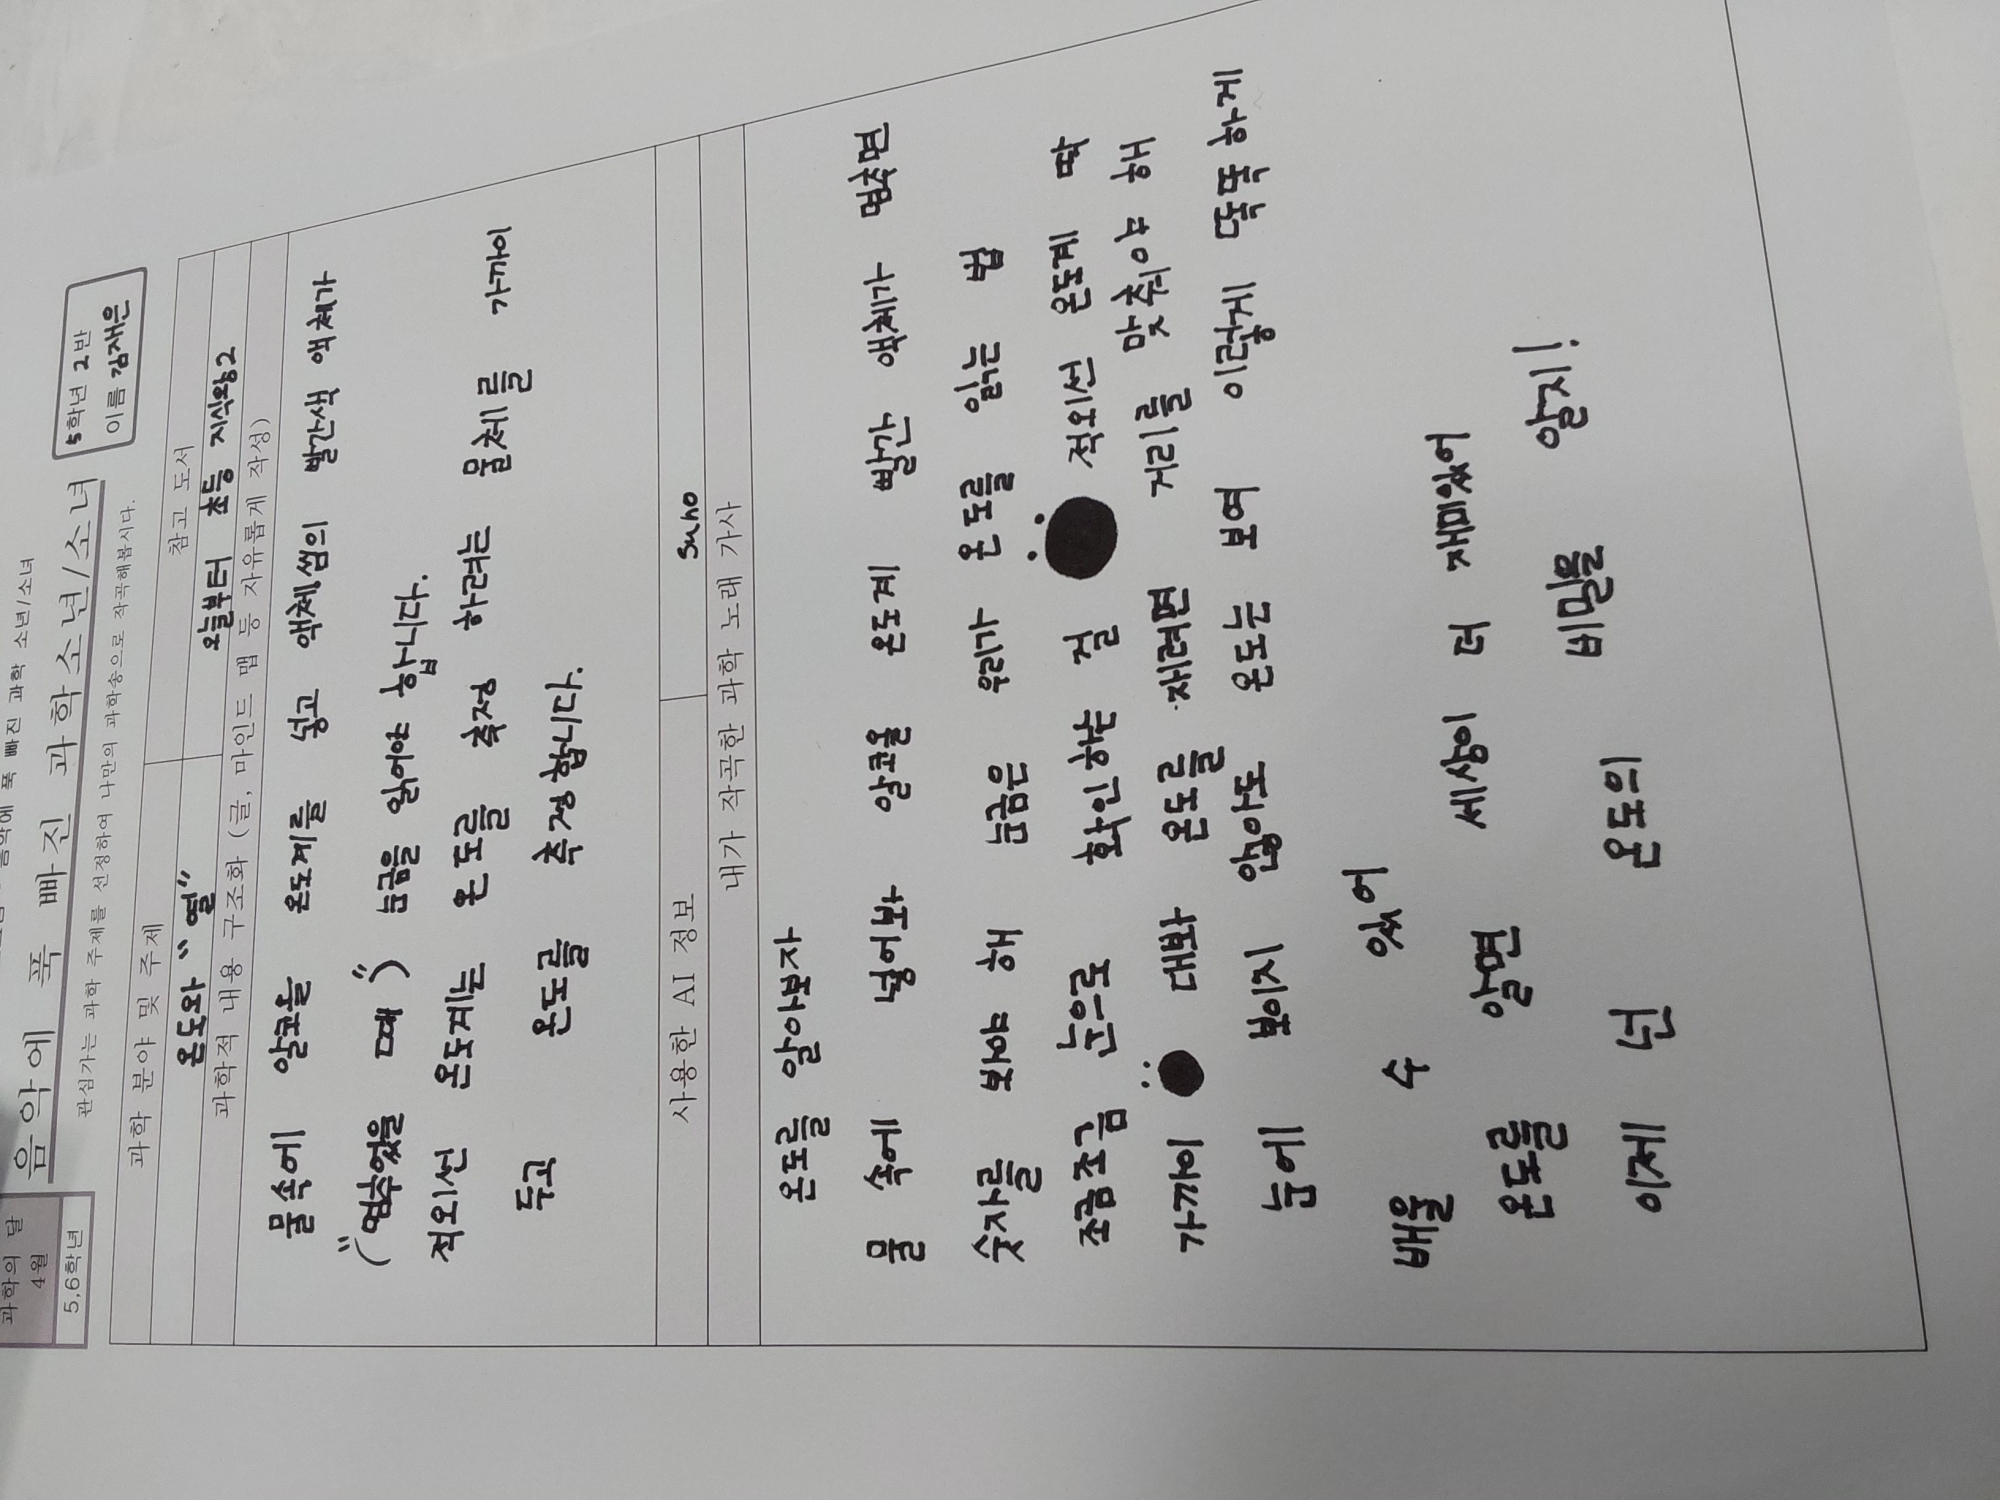 과학의 달
4월
5,6학년
음악에 푹 빠진 과학소년/소녀
5학년 2반
이름 김재은
관심가는 과학 주제를 선정하여 나만의 과학송으로 작곡해봅시다.
과학 분야 및 주제
참고 도서
온도와 "열"
오늘부터 초등 지식왕2
과학적 내용 구조화 (글, 마인드 맵 등 자유롭게 작성)
물속에 알코올 온도계를 넣고 액체샘의 빨간색 액체가
("멈추었을 때") 눈금을 읽어야 합니다.
적외선 온도계는 온도를 측정 하려는 물체를 가까이
두고 온도를 측정합니다.
사용한 AI 정보
Suno
내가 작곡한 과학 노래 가사
온도를 알아보자
물 속에 넣어봐 알코올 온도계 빨간 액체가 멈추면
숫자를 봐야 해 눈금은 우리가 온도를 읽는 법
조금조금 눈으로 확인하는 걸 적외선 온도계 딱
가까이 대봐 온도를 재려면 거리를 맞춰야 해
눈에 보이지 않아도 온도는 보여 이렇게 똑똑하게
배울 수 있어
온도를 알면 세상이 더 재미있어
이제 넌 온도의 비밀을 알지!